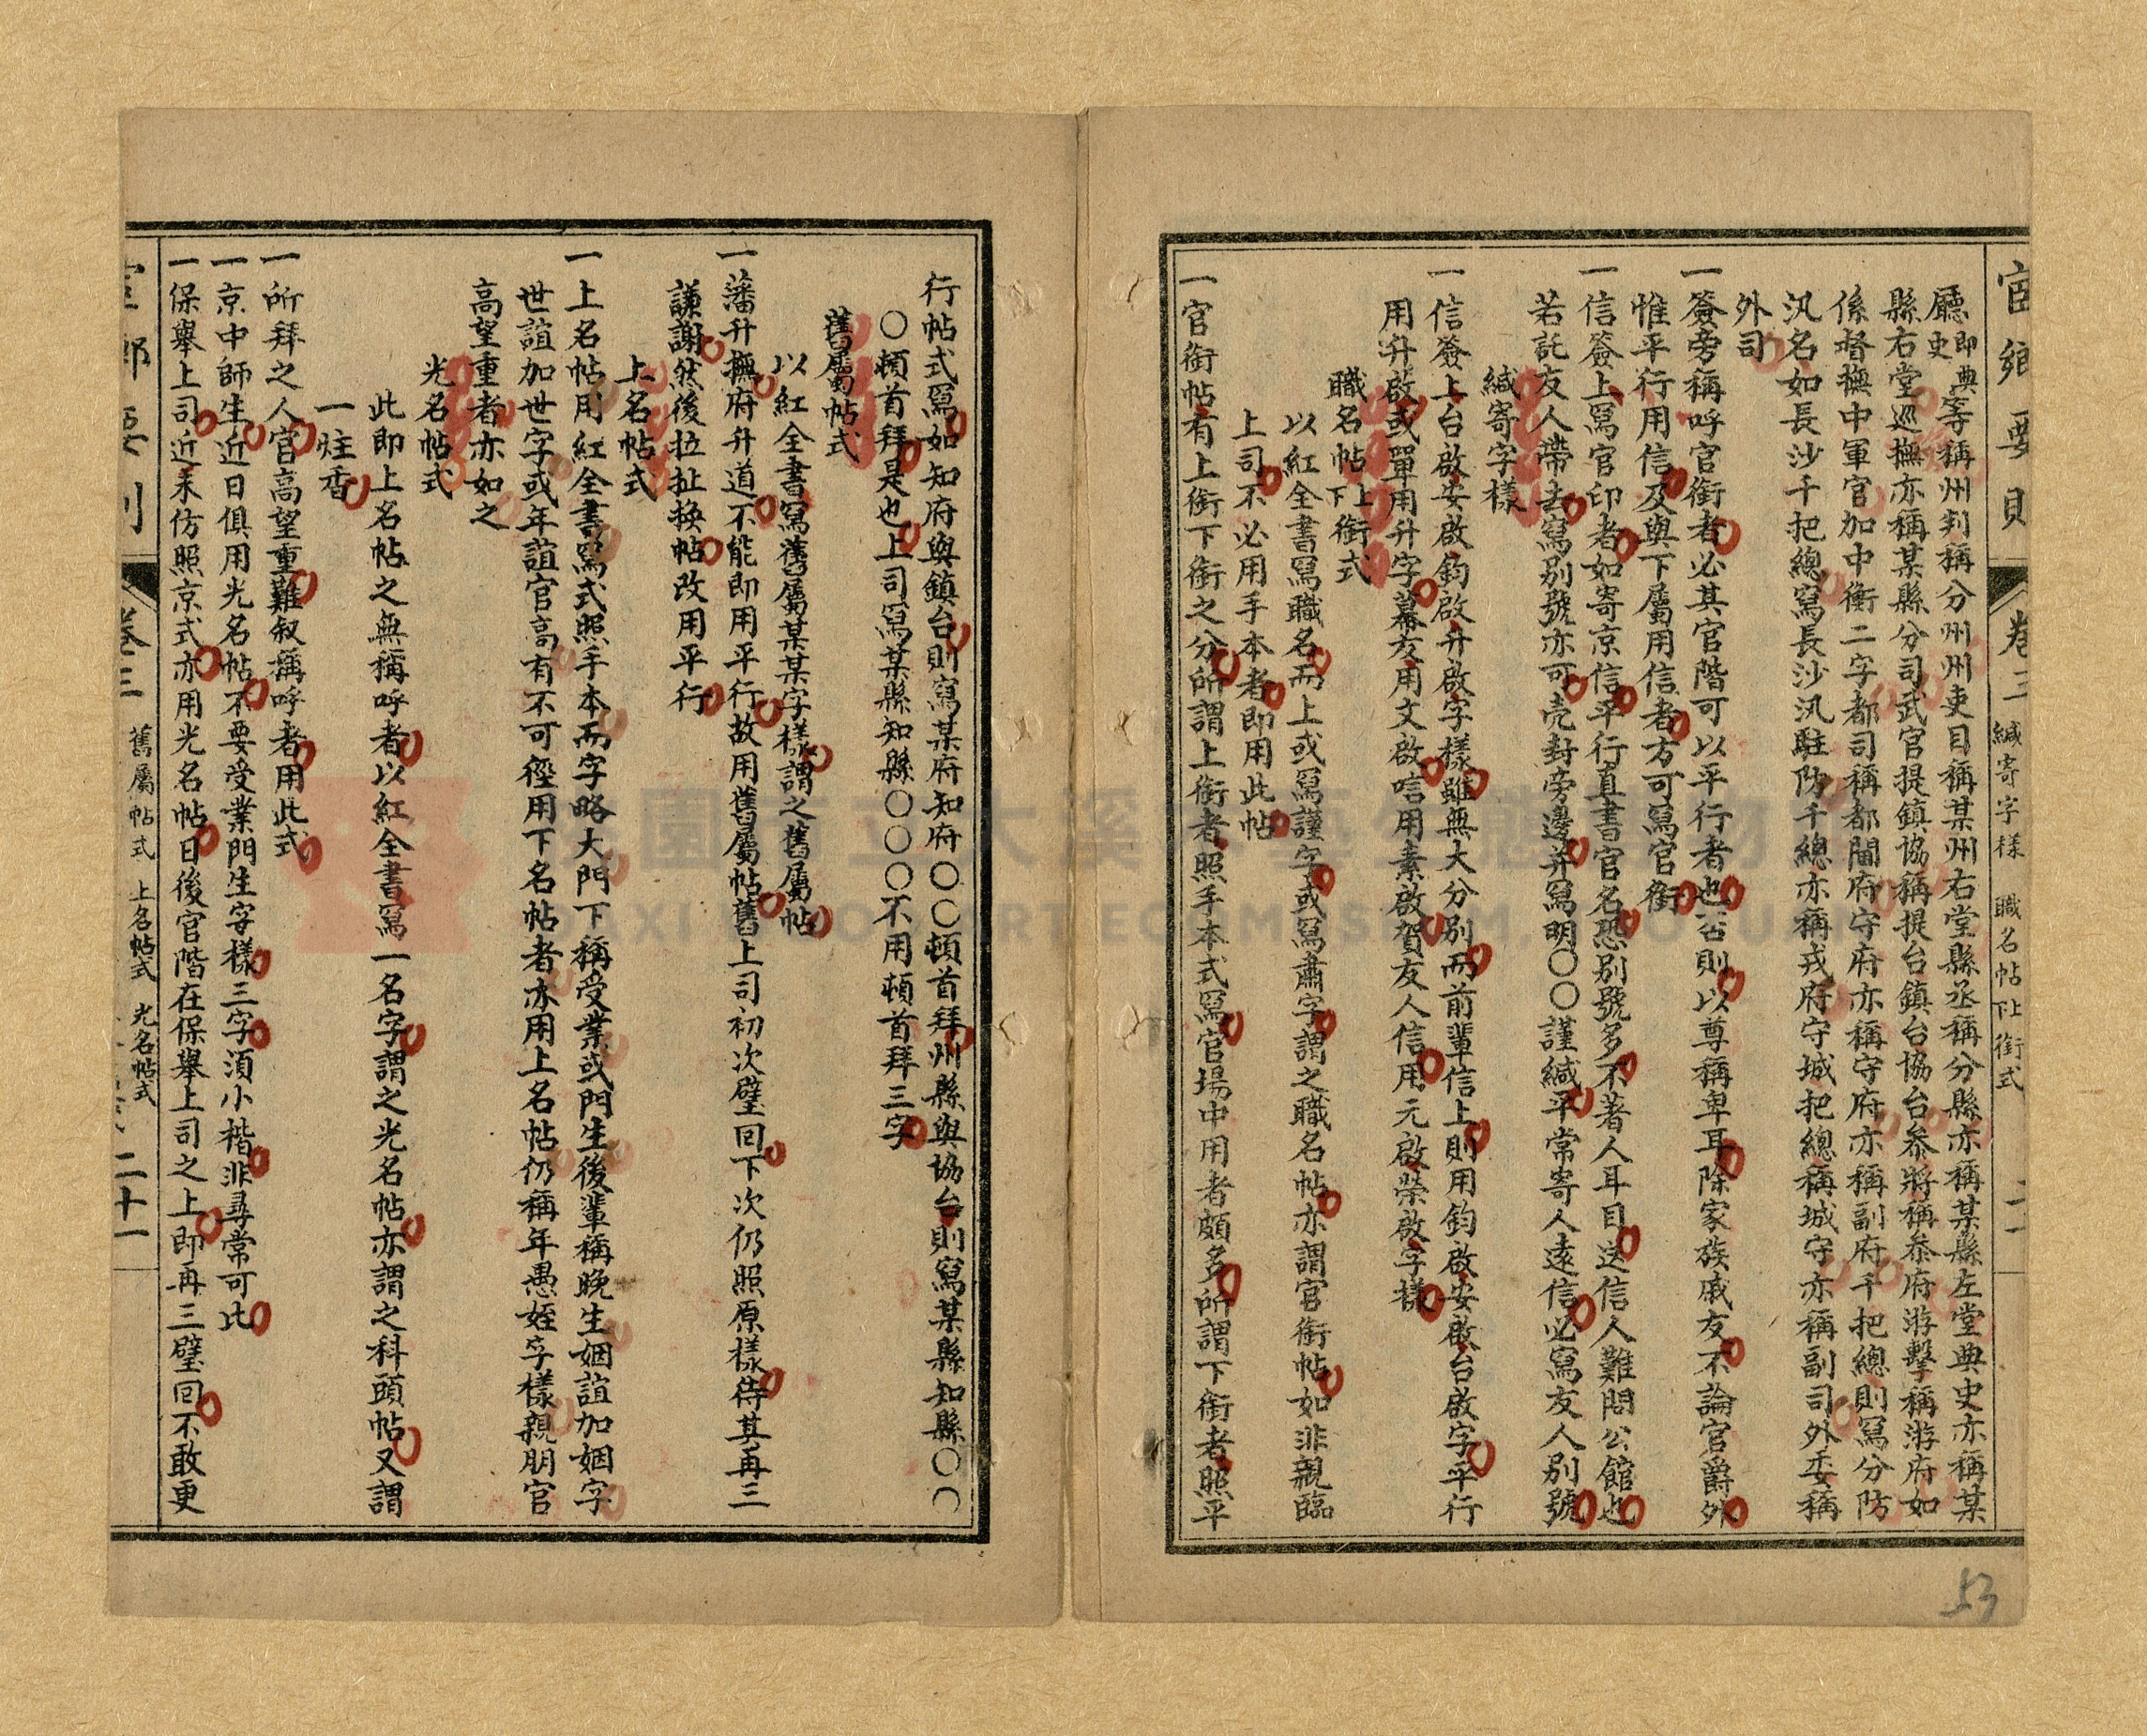 宦鄉要則 卷三 緘寄字樣 職名帖上下銜式 二十一
廳即典史等稱州判稱分州州吏目稱某州右堂縣丞稱分縣亦稱某縣左堂典史亦稱某
縣右堂巡撫亦稱某縣分司武官提鎮協稱提台鎮台協台叅將稱叅府游擊稱游府如
係督撫中軍官加中衡二字都司稱都閫府守府亦稱守府亦稱副府千把總則寫分防
汛名如長沙千把總寫長沙汛駐防千總亦稱戎府守城把總稱城守亦稱副司外委稱
外司
一簽旁稱呼官銜者必其官階可以平行者也否則以尊稱卑耳除家族戚友不論官爵外
惟平行用信及與下屬用信者方可寫官銜
一信簽上寫官印者如寄京信平行直書官名恐別號多不著人耳目送信人難問公館也
若託友人帶去寫別號亦可売封旁邊并寫明〇〇謹緘平常寄人遠信必寫友人別號
緘寄字樣
一信簽上台啟安啟鈞啟升啟字樣雖無大分別而前輩信上則用鈞啟安啟台啟字平行
用升啟或單用升字幕友用文啟唁用素啟賀友人信用元啟榮啟字樣
職名帖上下銜式
以紅全書寫職名而上或寫謹字或寫肅字謂之職名帖亦謂官銜帖如非親臨
上司不必用手本者即用此帖
一官銜帖有上銜下銜之分所謂上銜者照手本式寫官場中用者頗多所謂下銜者照平
行帖式寫如知府與鎮台則寫某府知府〇〇頓首拜州縣與協台則寫某縣知縣〇〇
〇頓首拜是也上司寫某縣知縣〇〇〇不用頓首拜三字
舊屬帖式
以紅全書寫舊屬某某字樣謂之舊屬帖
一藩升撫府升道不能即用平行故用舊屬帖舊上司初次璧回下次仍照原樣待其再三
謙謝然後拉扯換帖改用平行
上名帖式
一上名帖用紅全書寫式照手本而字略大門下稱受業或門生後輩稱晚生姻誼加姻字
世誼加世字或年誼官高有不可徑用下名帖者亦用上名帖仍稱年愚姪字樣親朋官
高望重者亦如之
光名帖式
此即上名帖之無稱呼者以紅全書寫一名字謂之光名帖亦謂之科頭帖又謂
一炷香
一所拜之人官高望重難叙稱呼者用此式
一京中師生近日俱用光名帖不要受業門生字樣三字須小楷非尋常可比
一保舉上司近来仿照京式亦用光名帖日後官階在保舉上司之上即再三璧回不敢更
卷三 舊屬帖式 上名帖式 光名帖式 二十一
53